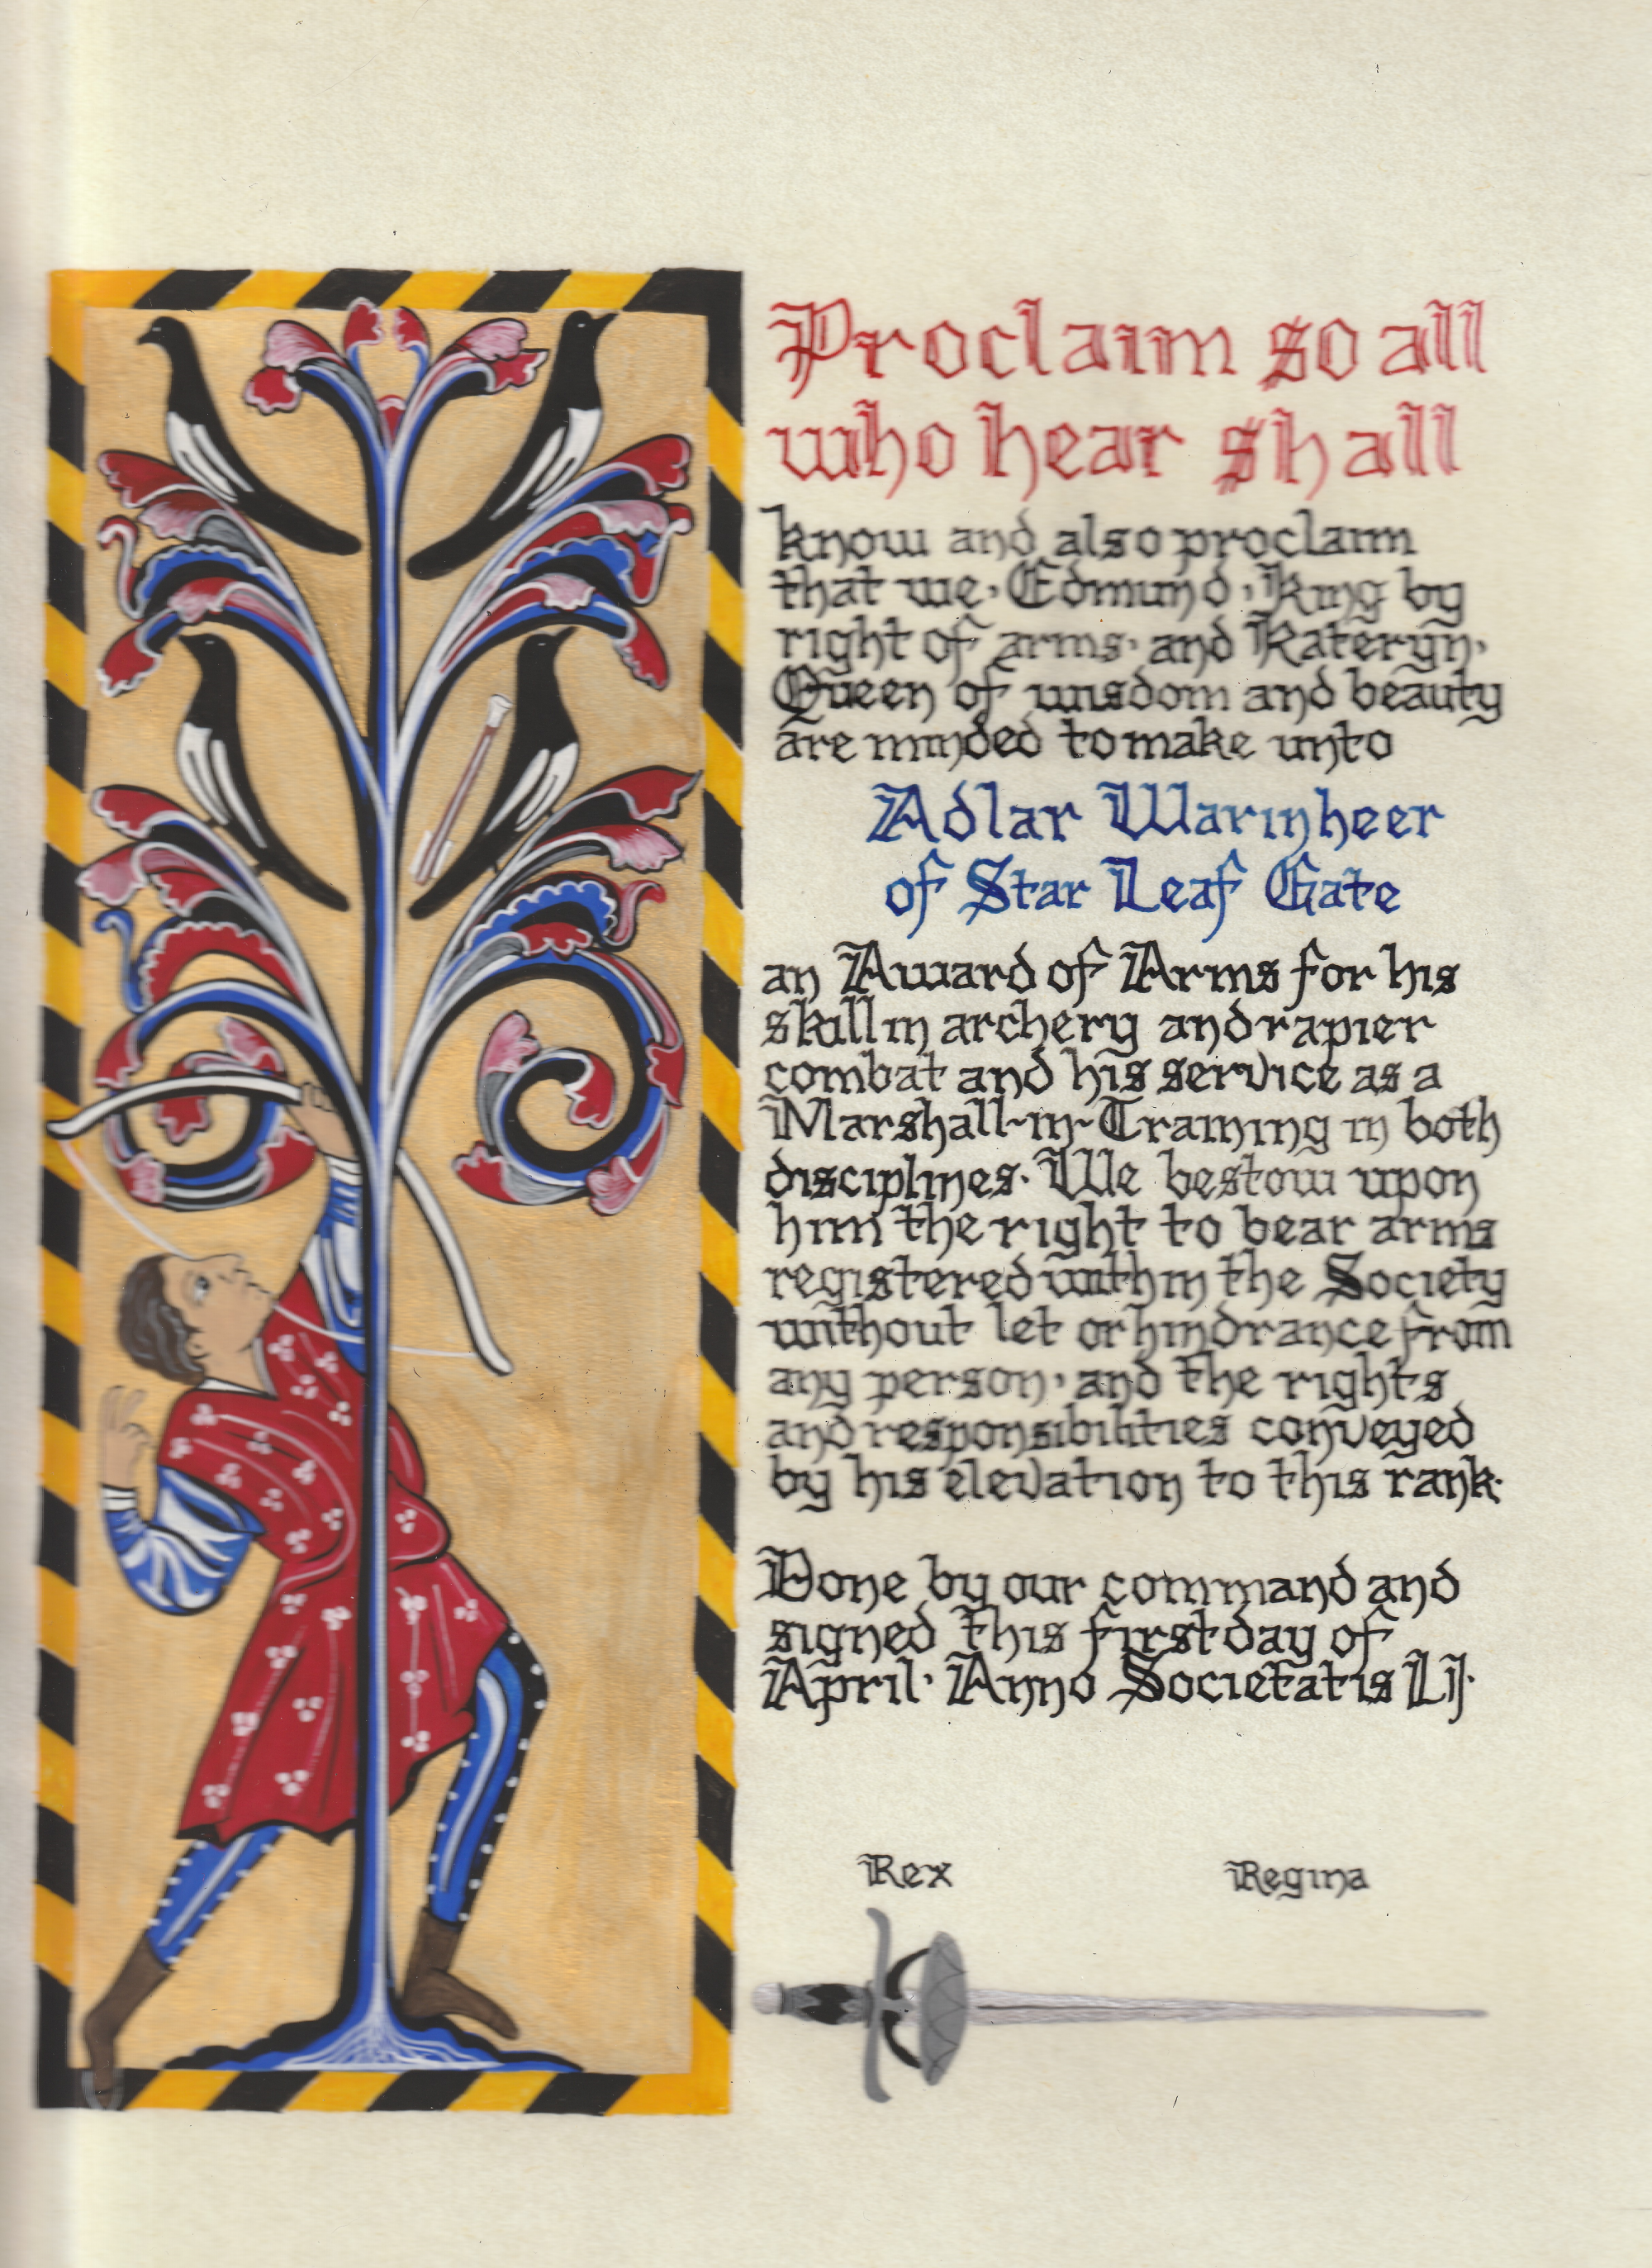 Proclaim so all
who hear shall
know and also proclaim
that we, Edmund, King by
right of arms, and Kateryn,
Queen of wisdom and beauty
are minded to make unto
Adlar Warinheer
of Star Leaf Gate
an Award of Arms for his
skill in archery and rapier
combat and his service as a
Marshall-in-Training in both
disciplines. We bestow upon
him the right to bear arms
registered within the Society
without let or hindrance from
any person, and the rights
and responsibilities conveyed
by his elevation to this rank.
Done by our command and
signed this first day of
April, Anno Societatis Lij.
Rex Regina